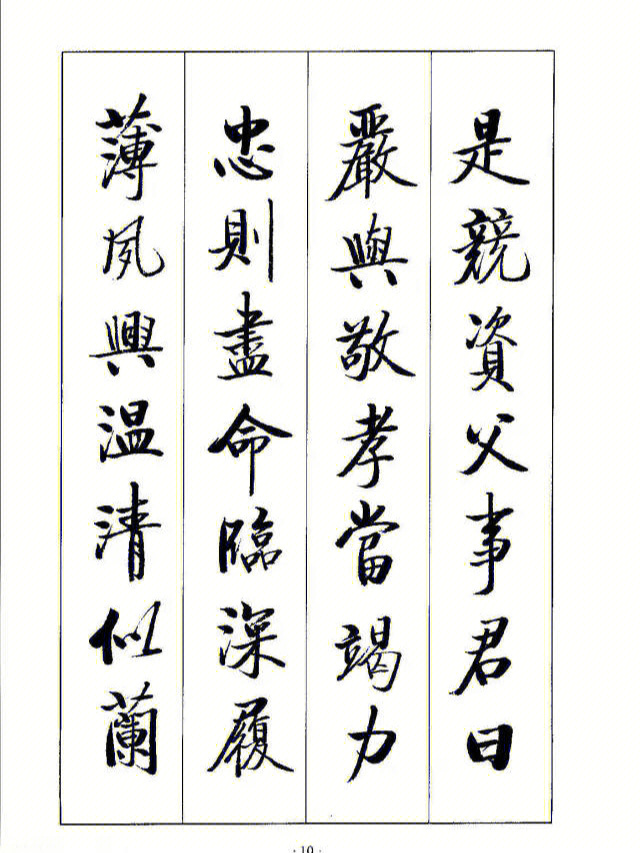 是競資父事君曰
嚴與敬孝當竭力
忠則盡命臨深履
薄夙興温清似蘭
· 10 ·